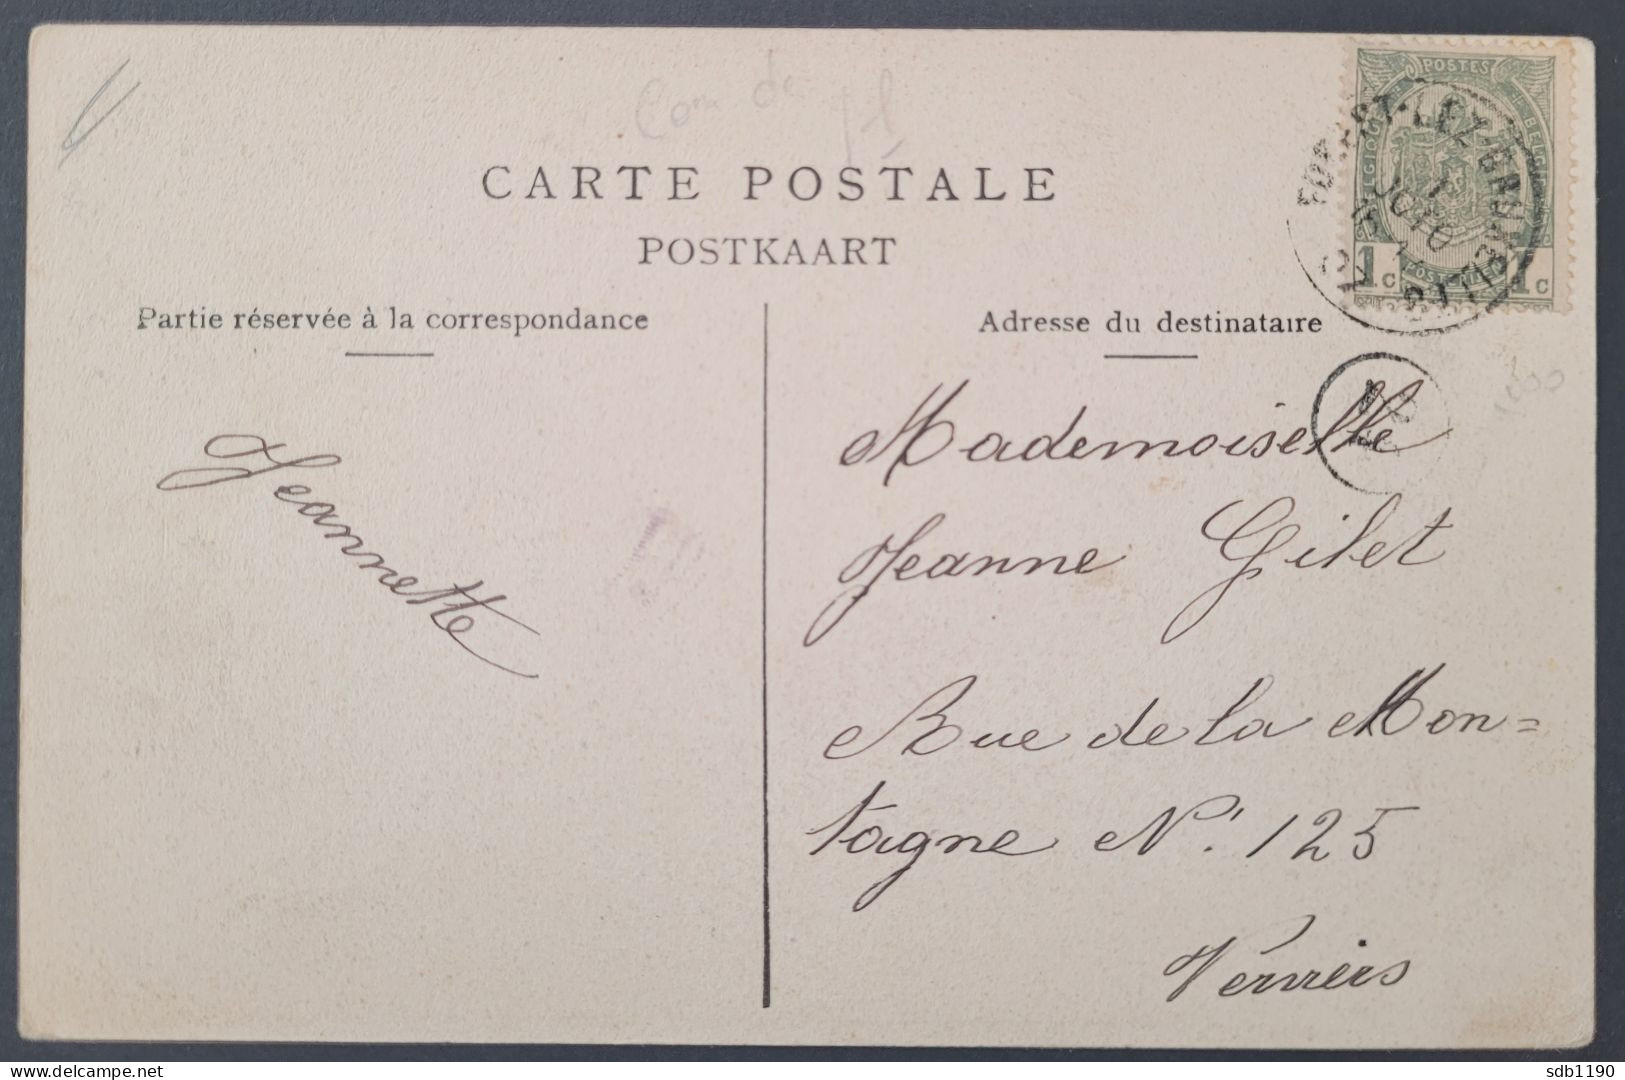 CARTE POSTALE
POSTKAART
Partie réservée à la correspondance
Adresse du destinataire
POSTES
BELGIQUE
BELGIË
POSTERIJEN
1c 1c
FOREST-LEZ-BRUXELLES
Jeannette
Mademoiselle
Jeanne Gilet
Rue de la Mon=
tagne N° 125
Verviers
delcampe.net
sdb1190